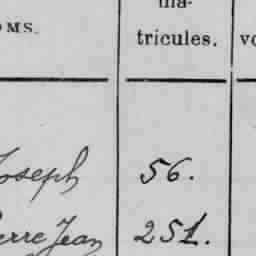 ma-
OMS. tricules. vo
Joseph 56.
ierre Jean 251.